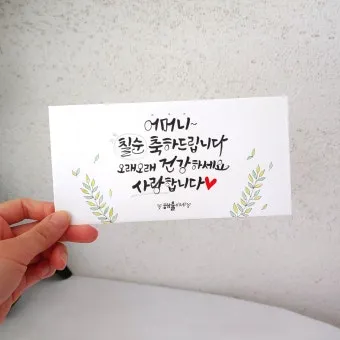 어머니~
칠순 축하드립니다
오래오래 건강하세요
사랑합니다♥